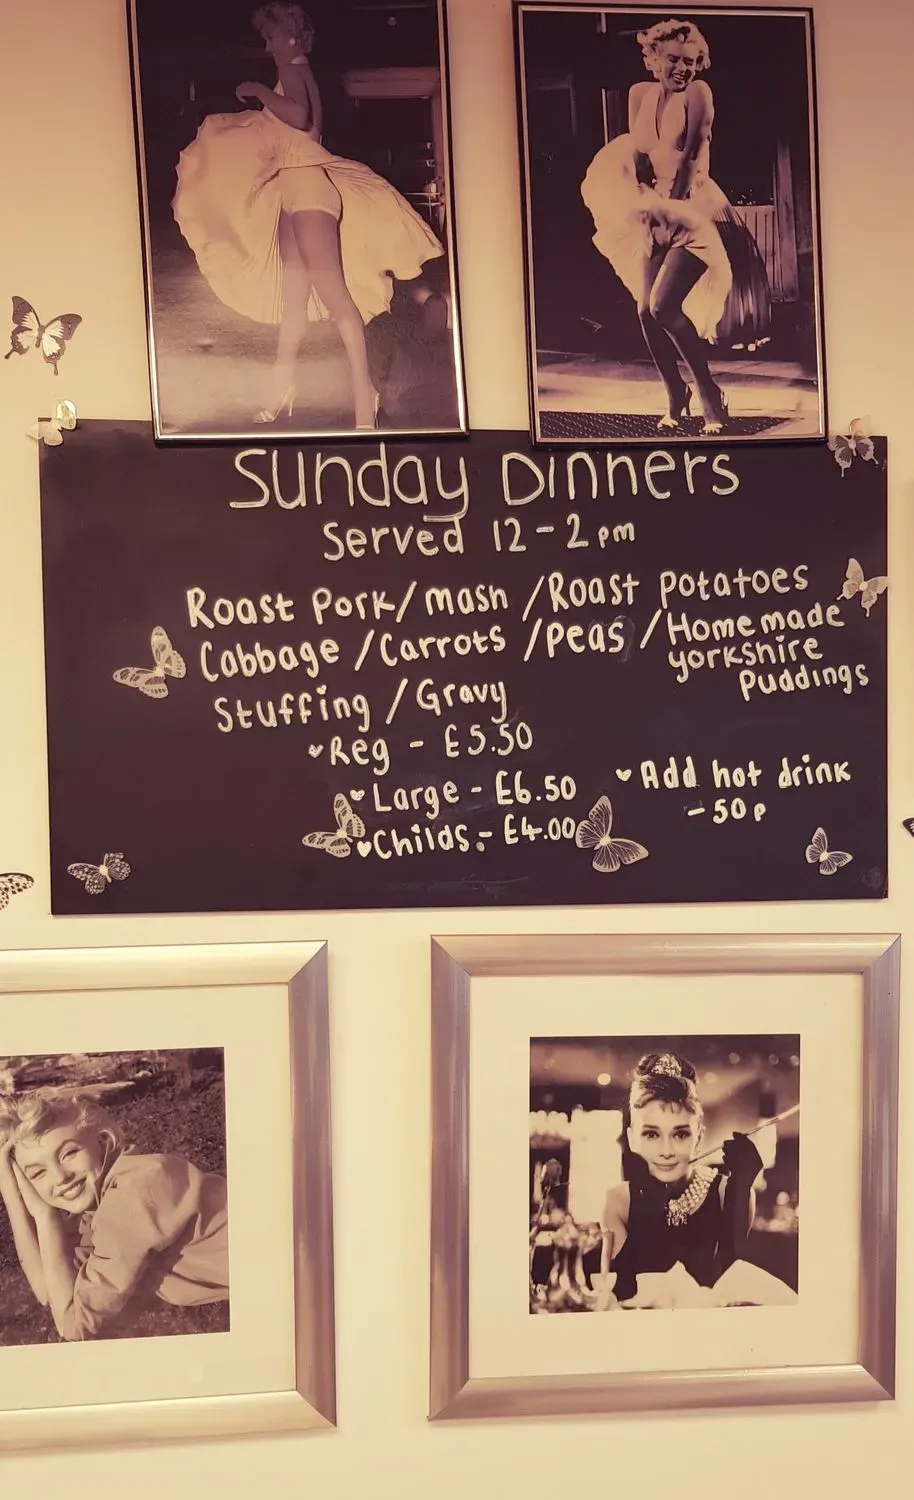 Sunday Dinners
Served 12-2pm
Roast Pork/mash/Roast Potatoes
Cabbage/Carrots/Peas/Homemade
yorkshire
Puddings
Stuffing/Gravy
Reg - £5.50
Large - £6.50
Childs - £4.00
Add hot drink
- 50p